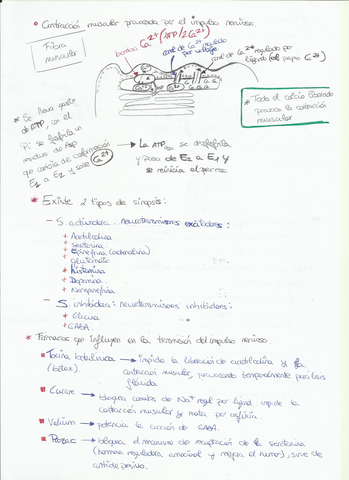 Contracción muscular provocada por el impulso nervioso.
Fibra
muscular
bomba Ca2+ (ATP/2Ca2+)
canal de Ca2+ regulado
por voltaje
canal de Ca2+ regulado por
ligando (el propio Ca2+)
* Todo el calcio liberado
provoca la contracción
muscular
* Se lleva gasto
de ATP, con el
Pi se fosforila un
residuo de Asp
que cambia de conformación
E1 a E2 y sale Ca2+
→ La ATP se desfosforila
y pasa de E2 a E1 y
se reinicia el proceso
* Existe 2 tipos de sinapsis:
- S. activadora: neurotransmisores excitadores:
+ Acetilcolina
+ serotonina
+ Epinefrina (adrenalina)
+ glutamato
+ Histamina
+ Dopamina
+ Norepinefrina
- S. inhibidora: neurotransmisores inhibidores:
+ Glicina
+ GABA.
* Fármacos que influyen en la transmisión del impulso nervioso.
Toxina botulínica → impide la liberación de acetilcolina y la
(botox). contracción muscular, provocando temporalmente parálisis
flácida.
Curare → bloquea canales de Na+ regul por ligand. impide la
contracción muscular y mata por asfixia
Valium → potencia la acción de GABA.
Prozac → bloquea el mecanismo de recaptación de la serotonina
(hormona reguladora emocional y mejora el humor), sirve de
antidepresivo.